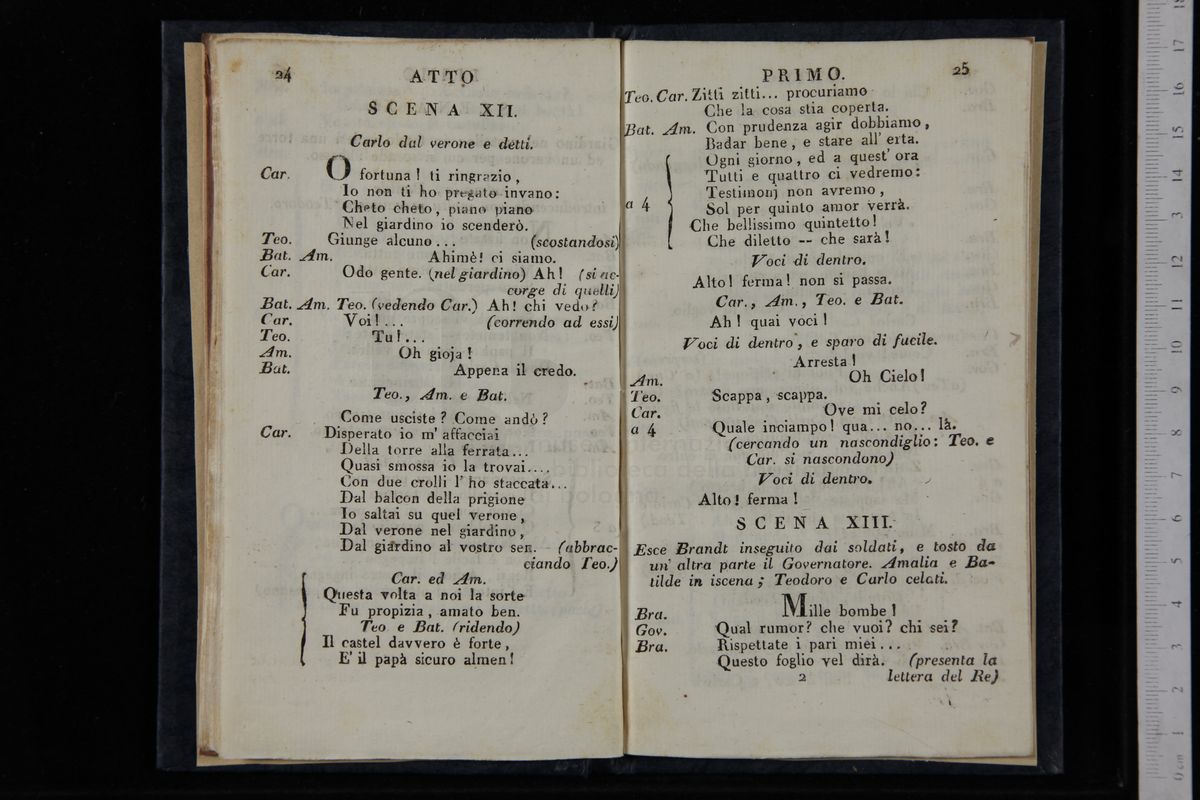 24
ATTO
SCENA XII.
Carlo dal verone e detti.
Car. O fortuna! ti ringrazio,
Io non ti ho pregato invano:
Cheto cheto, piano piano
Nel giardino io scenderò.
Teo. Giunge alcuno... (scostandosi)
Bat. Am. Ahimè! ci siamo.
Car. Odo gente. (nel giardino) Ah! (si ac-
corge di quelli)
Bat. Am. Teo. (vedendo Car.) Ah! chi vedo?
Car. Voi!... (correndo ad essi)
Teo. Tu!...
Am. Oh gioja!
Bat. Appena il credo.
Teo., Am. e Bat.
Come usciste? Come andò?
Car. Disperato io m' affacciai
Della torre alla ferrata...
Quasi smossa io la trovai....
Con due crolli l' ho staccata...
Dal balcon della prigione
Io saltai su quel verone,
Dal verone nel giardino,
Dal giardino al vostro sen. (abbrac-
ciando Teo.)
Car. ed Am.
Questa volta a noi la sorte
Fu propizia, amato ben.
Teo e Bat. (ridendo)
Il castel davvero è forte,
E' il papà sicuro almen!
PRIMO.
25
Teo. Car. Zitti zitti... procuriamo
Che la cosa stia coperta.
Bat. Am. Con prudenza agir dobbiamo,
Badar bene, e stare all' erta.
Ogni giorno, ed a quest' ora
Tutti e quattro ci vedremo:
Testimonj non avremo,
a 4 Sol per quinto amor verrà.
Che bellissimo quintetto!
Che diletto -- che sarà!
Voci di dentro.
Alto! ferma! non si passa.
Car., Am., Teo. e Bat.
Ah! quai voci!
Voci di dentro, e sparo di fucile.
Arresta!
Am. Oh Cielo!
Teo. Scappa, scappa.
Car. Ove mi celo?
a 4 Quale inciampo! qua... no... là.
(cercando un nascondiglio: Teo. e
Car. si nascondono)
Voci di dentro.
Alto! ferma!
SCENA XIII.
Esce Brandt inseguito dai soldati, e tosto da
un' altra parte il Governatore. Amalia e Ba-
tilde in iscena; Teodoro e Carlo celati.
Bra. Mille bombe!
Gov. Qual rumor? che vuoi? chi sei?
Bra. Rispettate i pari miei...
Questo foglio vel dirà. (presenta la
2 lettera del Re)